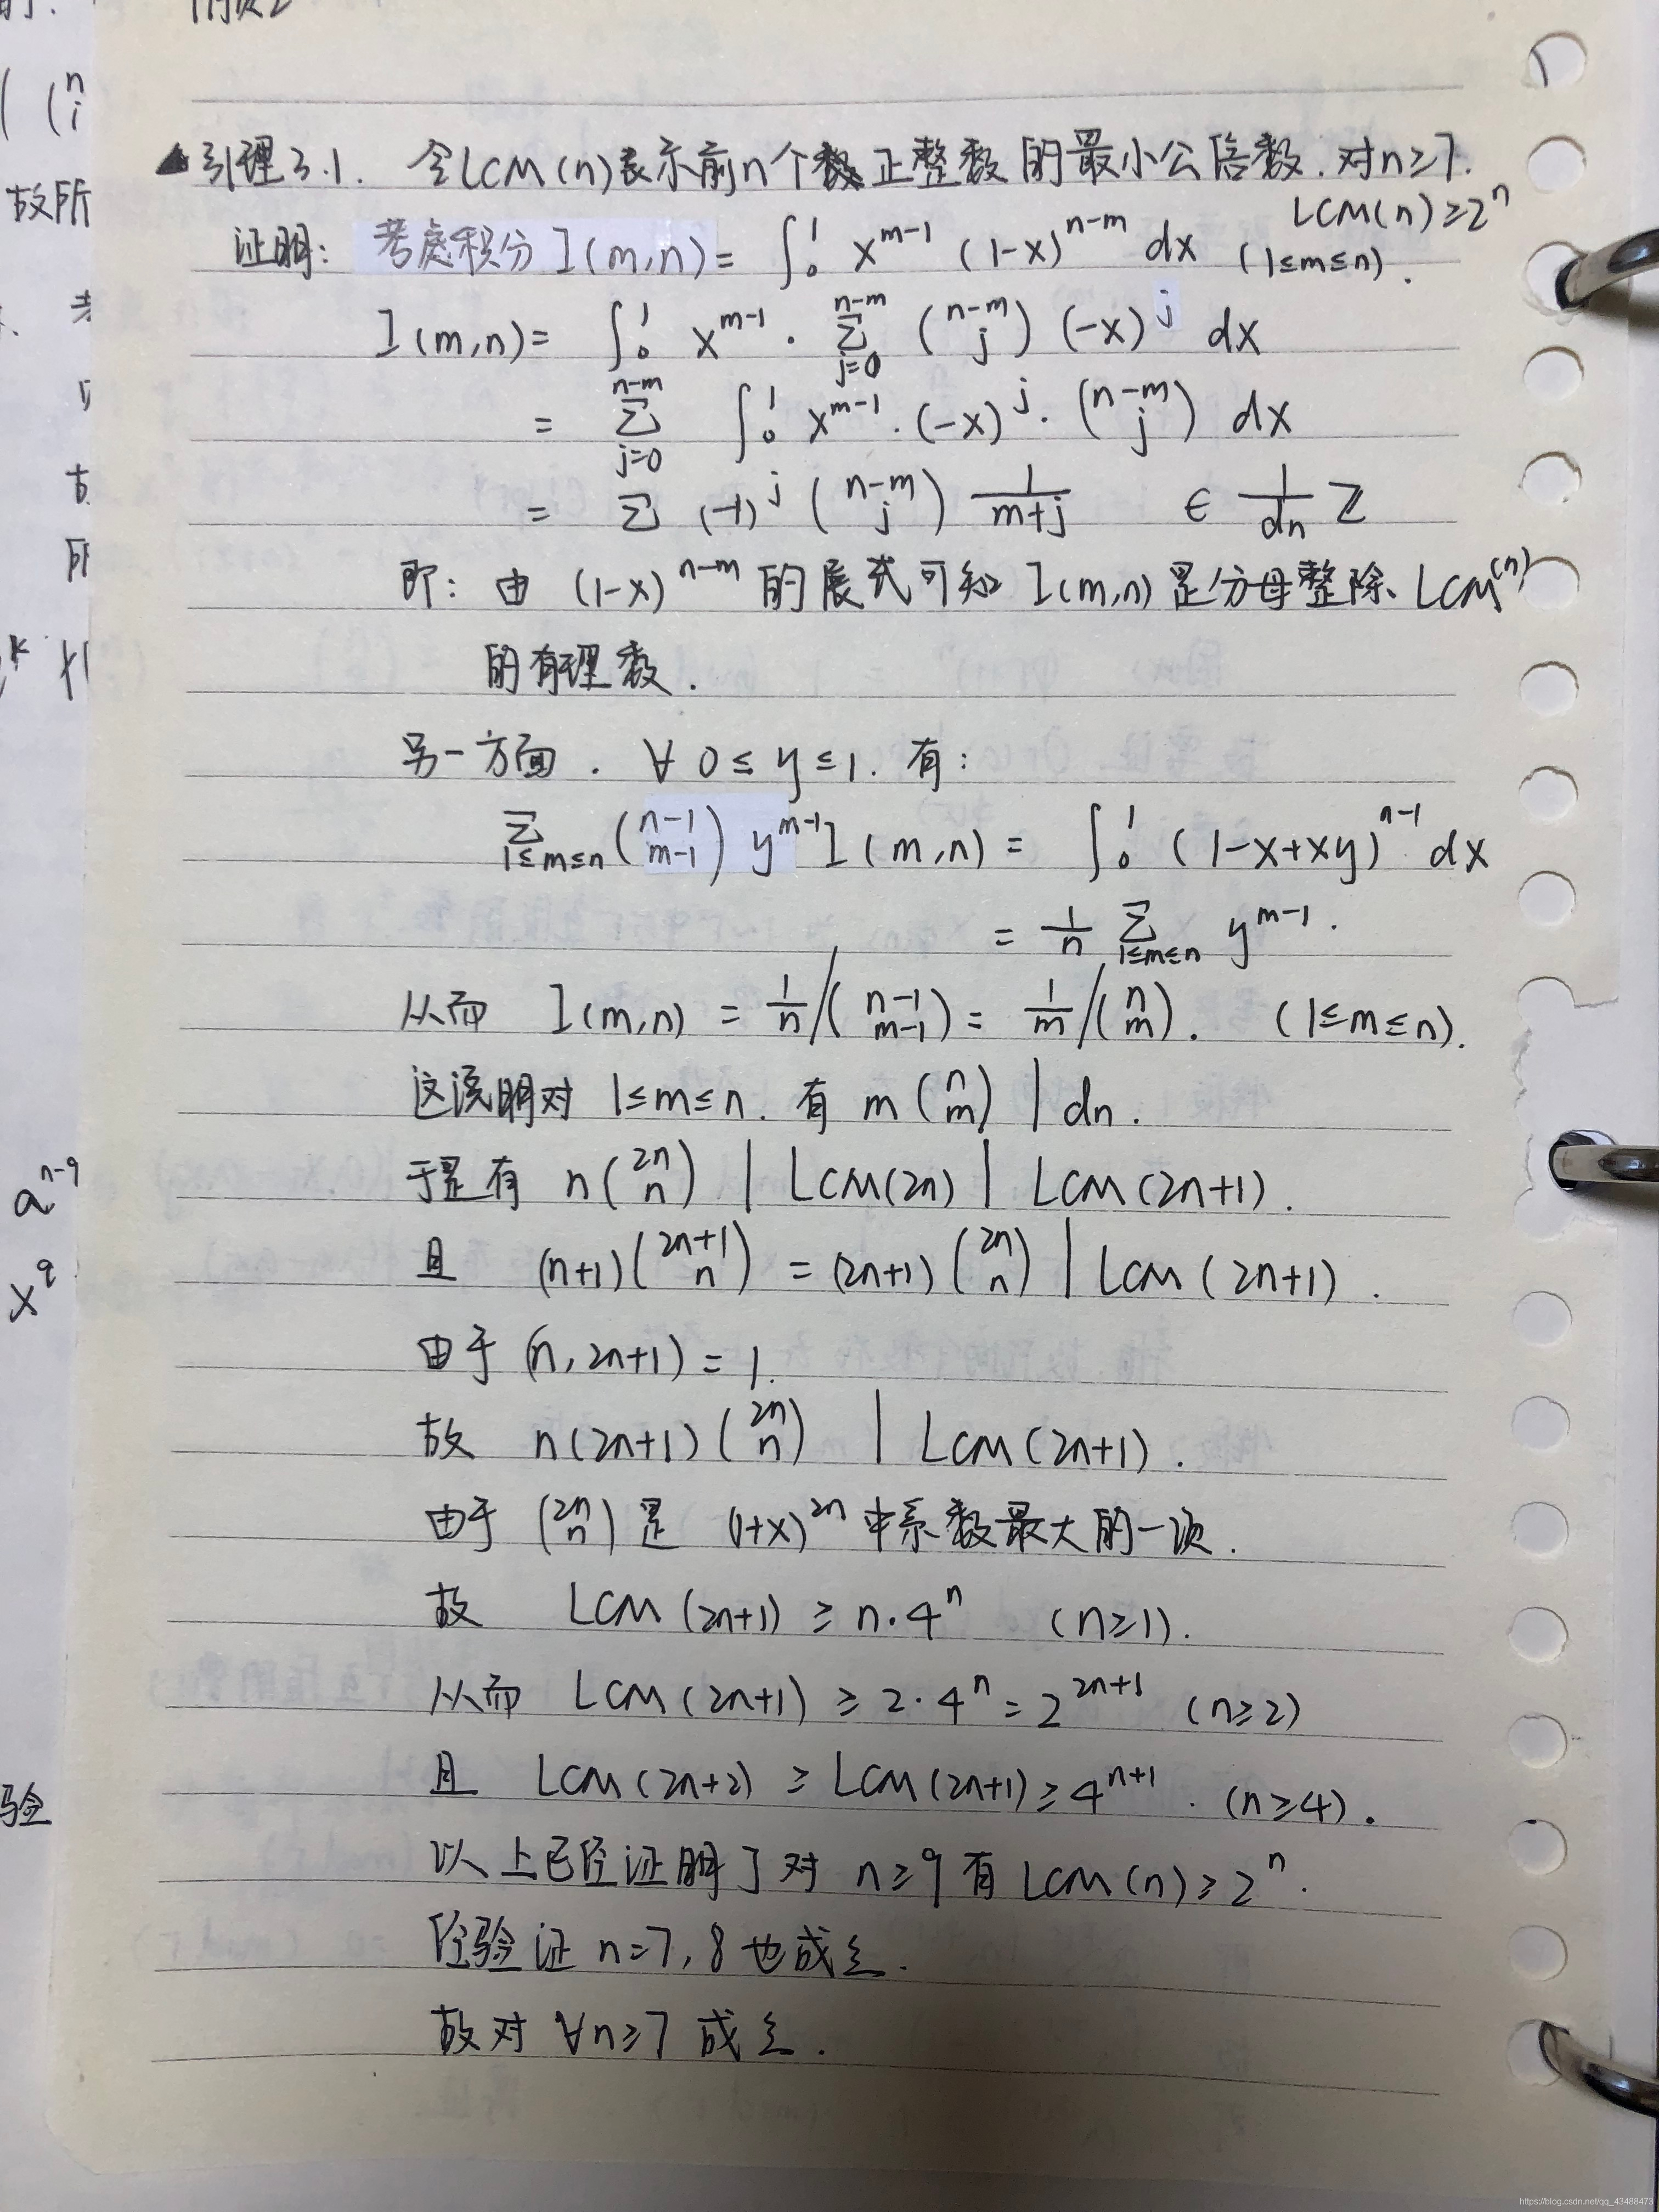 ( (n i
故所
▲引理3.1. 令LCM(n)表示前n个正整数的最小公倍数.对n≥7.
LCM(n)≥2^n
证明: 考虑积分 I(m,n)= ∫_0^1 x^{m-1} (1-x)^{n-m} dx (1≤m≤n).
I(m,n)= ∫_0^1 x^{m-1} · Σ_{j=0}^{n-m} (n-m j) (-x)^j dx
= Σ_{j=0}^{n-m} ∫_0^1 x^{m-1}·(-x)^j·(n-m j) dx
= Σ (-1)^j (n-m j) 1/(m+j) ∈ 1/dn Z
即: 由 (1-x)^{n-m} 的展式可知 I(m,n)是分母整除LCM(n)
的有理数.
另一方面. ∀ 0≤y≤1. 有:
Σ_{1≤m≤n} (n-1 m-1) y^{m-1} I(m,n) = ∫_0^1 (1-x+xy)^{n-1} dx
= 1/n Σ_{1≤m≤n} y^{m-1}.
从而 I(m,n) = 1/n /(n-1 m-1) = 1/m /(n m). (1≤m≤n).
这说明对 1≤m≤n. 有 m(n m) | dn.
于是有 n(2n n) | LCM(2n) | LCM(2n+1).
a^{n-q}
且 (n+1)(2n+1 n) = (2n+1)(2n n) | LCM(2n+1).
x^q
由于 (n,2n+1)=1.
故 n(2n+1)(2n n) | LCM(2n+1).
由于 (2n n) 是 (1+x)^{2n} 中系数最大的一项.
故 LCM(2n+1) ≥ n·4^n (n≥1).
从而 LCM(2n+1) ≥ 2·4^n = 2^{2n+1} (n≥2)
且 LCM(2n+2) ≥ LCM(2n+1) ≥ 4^{n+1}. (n≥4).
验
以上已经证明了对 n≥9有LCM(n)≥2^n.
经验证 n=7,8也成立.
故对 ∀n≥7 成立.
https://blog.csdn.net/qq_43488473